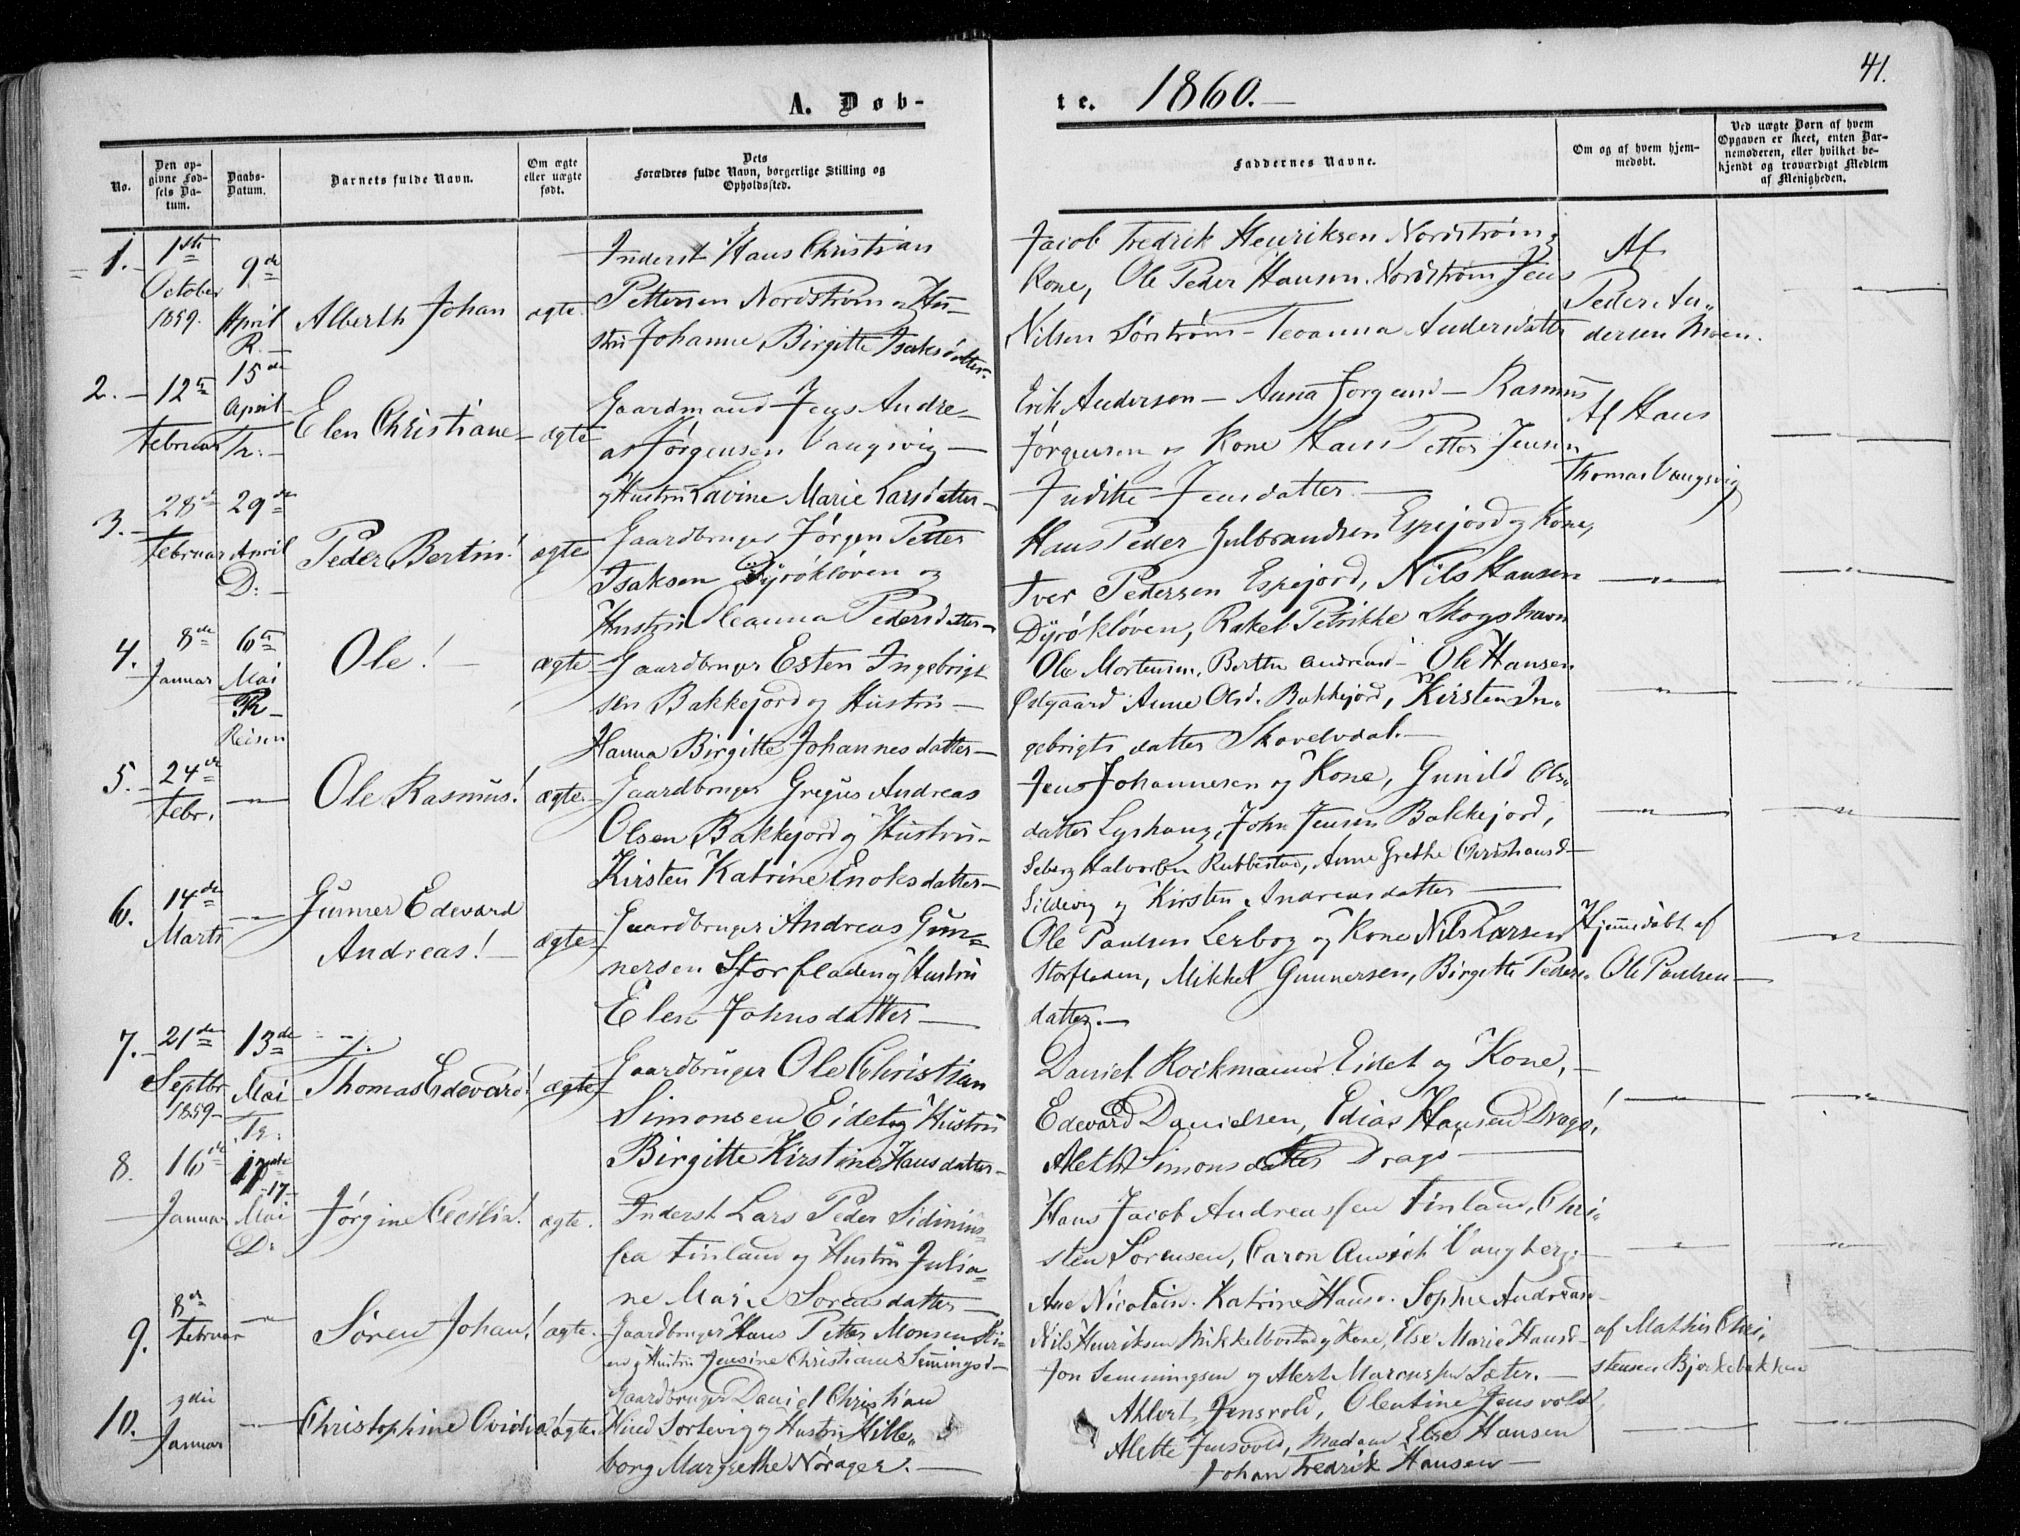 41.
A. Døb-
te. 1860.
No.
Den op-
givne Fød-
sels Da-
tum.
Daabs-
Datum.
Barnets fulde Navn.
Om ægte
eller uægte
født.
Dets
Forældres fulde Navn, borgerlige Stilling og
Opholdssted.
Faddernes Navne.
Om og af hvem hjem-
medøbt.
Ved uægte Børn af hvem
Opgaven er skeet, enten Bar-
nemoderen, eller hvilket be-
kjendt og troværdigt Medlem
af Menigheden.
1.
1ste
October
1859.
9de
April
R.
Alberth Johan
ægte.
Inderst Hans Christian
Pettersen Nordstrøm og Hu-
stru Johanne Birgitte Isaksdatter.
Jacob Fredrik Henriksen Nordstrøm og
Kone, Ole Peder Hansen Nordstrøm Jens
Nilsen Sørstrøm - Teoanna Andersdatter
Af
Peder An-
dersen Moen.
2.
12te
Februar
15de
April
Tr.
Elen Christiane
ægte
Gaardmand Jens Andre-
as Jørgensen Vangsvig
og Hustru Lavine Marie Larsdatter
Erik Anderson - Anna Jørgensd - Rasmus
Jørgensen og Kone Hans Petter Jensen
Judithe Jensdatter
Af Hans
Thomas Vangsvig
3.
28de
Februar
29de
April
D.
Peder Bertin!
ægte
Gaardbruger Jørgen Petter
Isaksen Dyrökløven og
Hustru Oleanna Pedersdatter
Hans Peder Gulbrandsen Espejord og Kone,
Iver Pedersen Espejord, Nils Hansen
Dyrökløven, Rakel Petrikke Skogshavn
4.
8de
Januar
6te
Mai
R
Reisen
Ole!
ægte
Gaardbruger Esten Ingebrigt
sen Bakkejord og Hustru
Hanna Birgitte Johannesdatter
Ole Mortensen, Berthe Andreasd - Ole Hansen
Østgaard Anne Olsd. Bakkejord, Kirsten In-
gebrigtsdatter Skovelvdal.
5.
24de
Febr.
Ole Rasmus!
ægte.
Gaardbruger Gregus Andreas
Olsen Bakkejord og Hustru
Kirsten Katrine Enoksdatter
Jens Johannesen og Kone, Gunild Ols-
datter Lyshaug, John Jensen Bakkejord,
Seberg Halvorsen Rubbestad, Anne Grethe Christiansd
Sildevig og Kirsten Andreasdatter
6.
14de
Marts
Gunner Edevard
Andreas!
ægte
Gaardbruger Andreas Gun-
nersen Storfladen og Hustru
Elen Johnsdatter
Ole Paulsen Lerbog og Kone Nils Larsen
Storfladen, Mikkel Gunnersen, Birgitte Peders-
datter.
Hjemmedøbt af
Ole Paulsen
7.
21de
Septbr
1859
13de
Mai
Tr.
Thomas Edevard!
ægte
Gaardbruger Ole Christian
Simonsen Eidet og Hustru
Birgitte Kirstine Hansdatter
Daniel Rockmann Eidet og Kone,
Edevard Danielsen, Edias Hansen Dragø!
Aleth Simonsdatter Dragø
8.
16de
Januar
17
Mai
D.
Jørgine Cecilia!
ægte.
Inderst Lars Peder Sidinius
fra Finland og Hustru Julia-
ne Marie Sorensdatter
Hans Jacob Andreassen Finland, Chri-
sten Sorensen, Caron Vangberg
Ane Nicolaisd. Katrine Hansd. Sophie Andreasd
9.
8de
Februar
Søren Johan!
ægte.
Gaardbruger Hans Petter Monsen Ski-
end og Hustru Jensine Christiane Semmingsd
Nils Henriksen Mikkelbostad og Kone, Else Marie Hansd
Jon Semmingsen og Alert Marcussen Sæter.
af Mathis Chri-
stensen Bjorkebakken
10.
3die
Januar
Christophine Ovidia!
ægte.
Gaardbruger Daniel Christian
Hind Sortevig og Hustru Hille-
borg Margrethe Nørager.
Ahlert Jensvold, Olentine Jensvold,
Alette Jensvold, Madam Else Hansen
Johan Fredrik Hansen